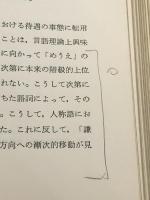 おける待遇の事態に転用
ことは、言語理論上興味
に向かって「めうえ」の
次第に本来の階級的上位
れない。こうして次第に
ちた語詞によって、その
。こうして、人称語にお
た。これに反して、「謙
方向への漸次的移動が見